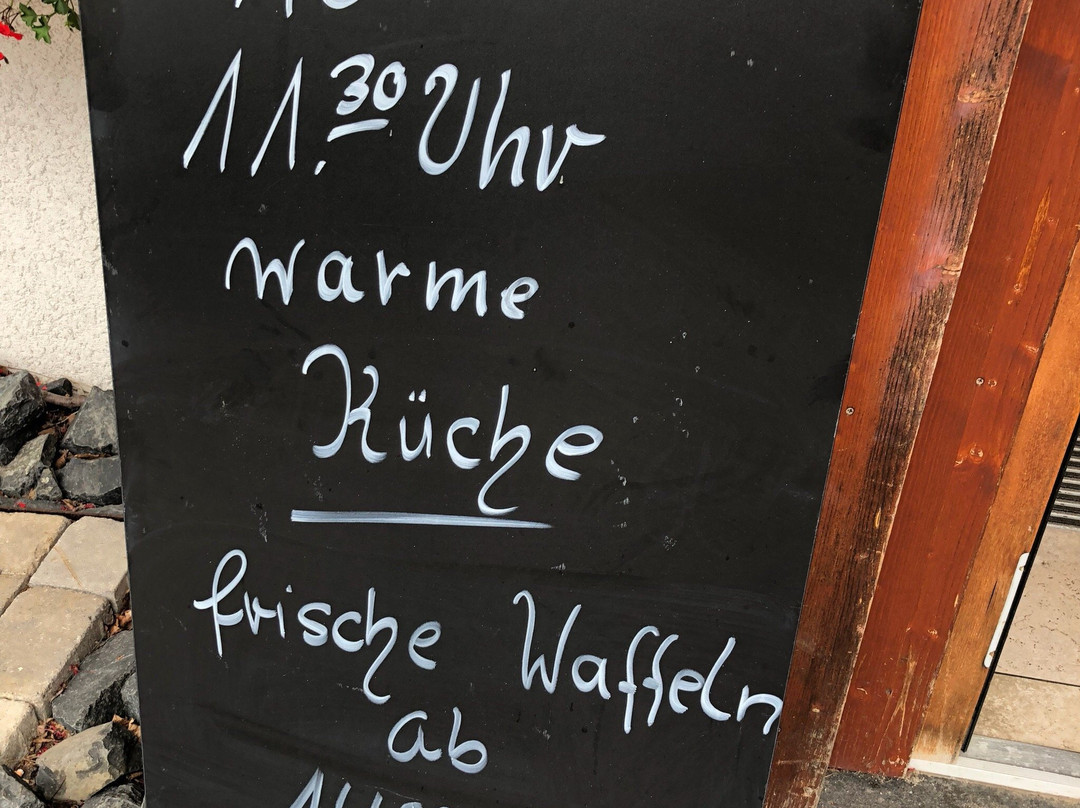 11.30 Uhr
warme
Küche
frische Waffeln
ab